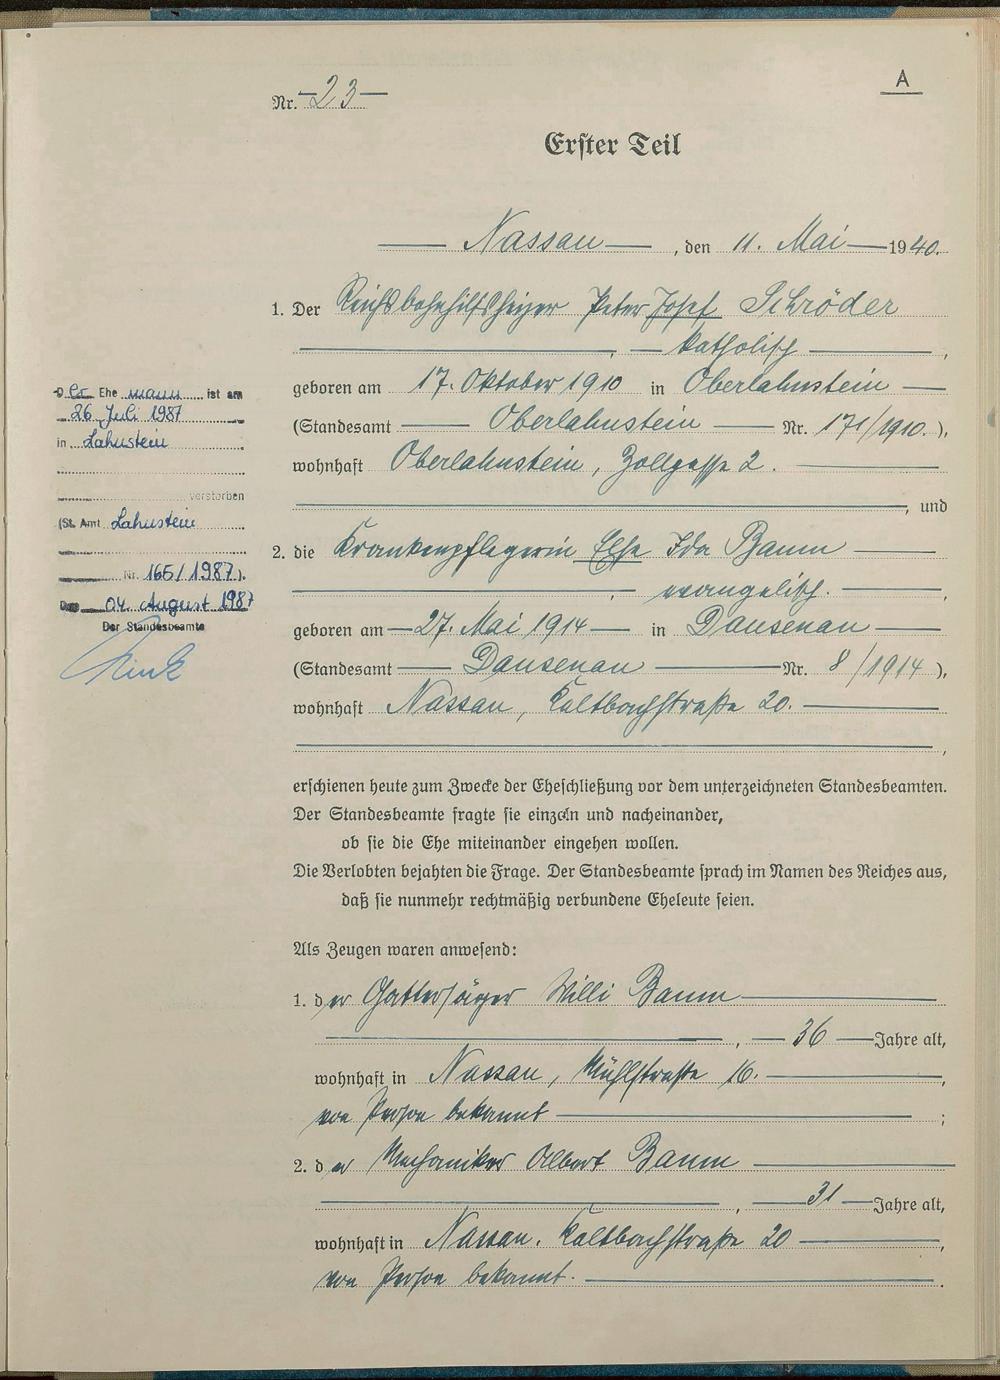 A
Nr. 23
Erster Teil
Nassau, den 11. Mai 1940.
1. Der Reichsbahnhilfsheizer Peter Josef Schröder
, katholisch,
geboren am 17. Oktober 1910 in Oberlahnstein
(Standesamt Oberlahnstein Nr. 171/1910.),
wohnhaft Oberlahnstein, Zollgasse 2.
, und
2. die Krankenpflegerin Else Ida Baum
, evangelisch.,
geboren am 27. Mai 1914 in Dausenau
(Standesamt Dausenau Nr. 8/1914),
wohnhaft Nassau, Kaltbachstraße 20.
,
erschienen heute zum Zwecke der Eheschließung vor dem unterzeichneten Standesbeamten.
Der Standesbeamte fragte sie einzeln und nacheinander,
ob sie die Ehe miteinander eingehen wollen.
Die Verlobten bejahten die Frage. Der Standesbeamte sprach im Namen des Reiches aus,
daß sie nunmehr rechtmäßig verbundene Eheleute seien.
Als Zeugen waren anwesend:
1. der Gattersäger Willi Baum
, 36 Jahre alt,
wohnhaft in Nassau, Mühlstraße 16.,
von Person bekannt ;
2. der Mechaniker Albert Baum
, 31 Jahre alt,
wohnhaft in Nassau, Kaltbachstraße 20,
von Person bekannt.
Der Ehemann ist am
26. Juli 1987
in Lahnstein
verstorben
(St. Amt Lahnstein
Nr. 165/1987).
Den 04. August 1987
Der Standesbeamte